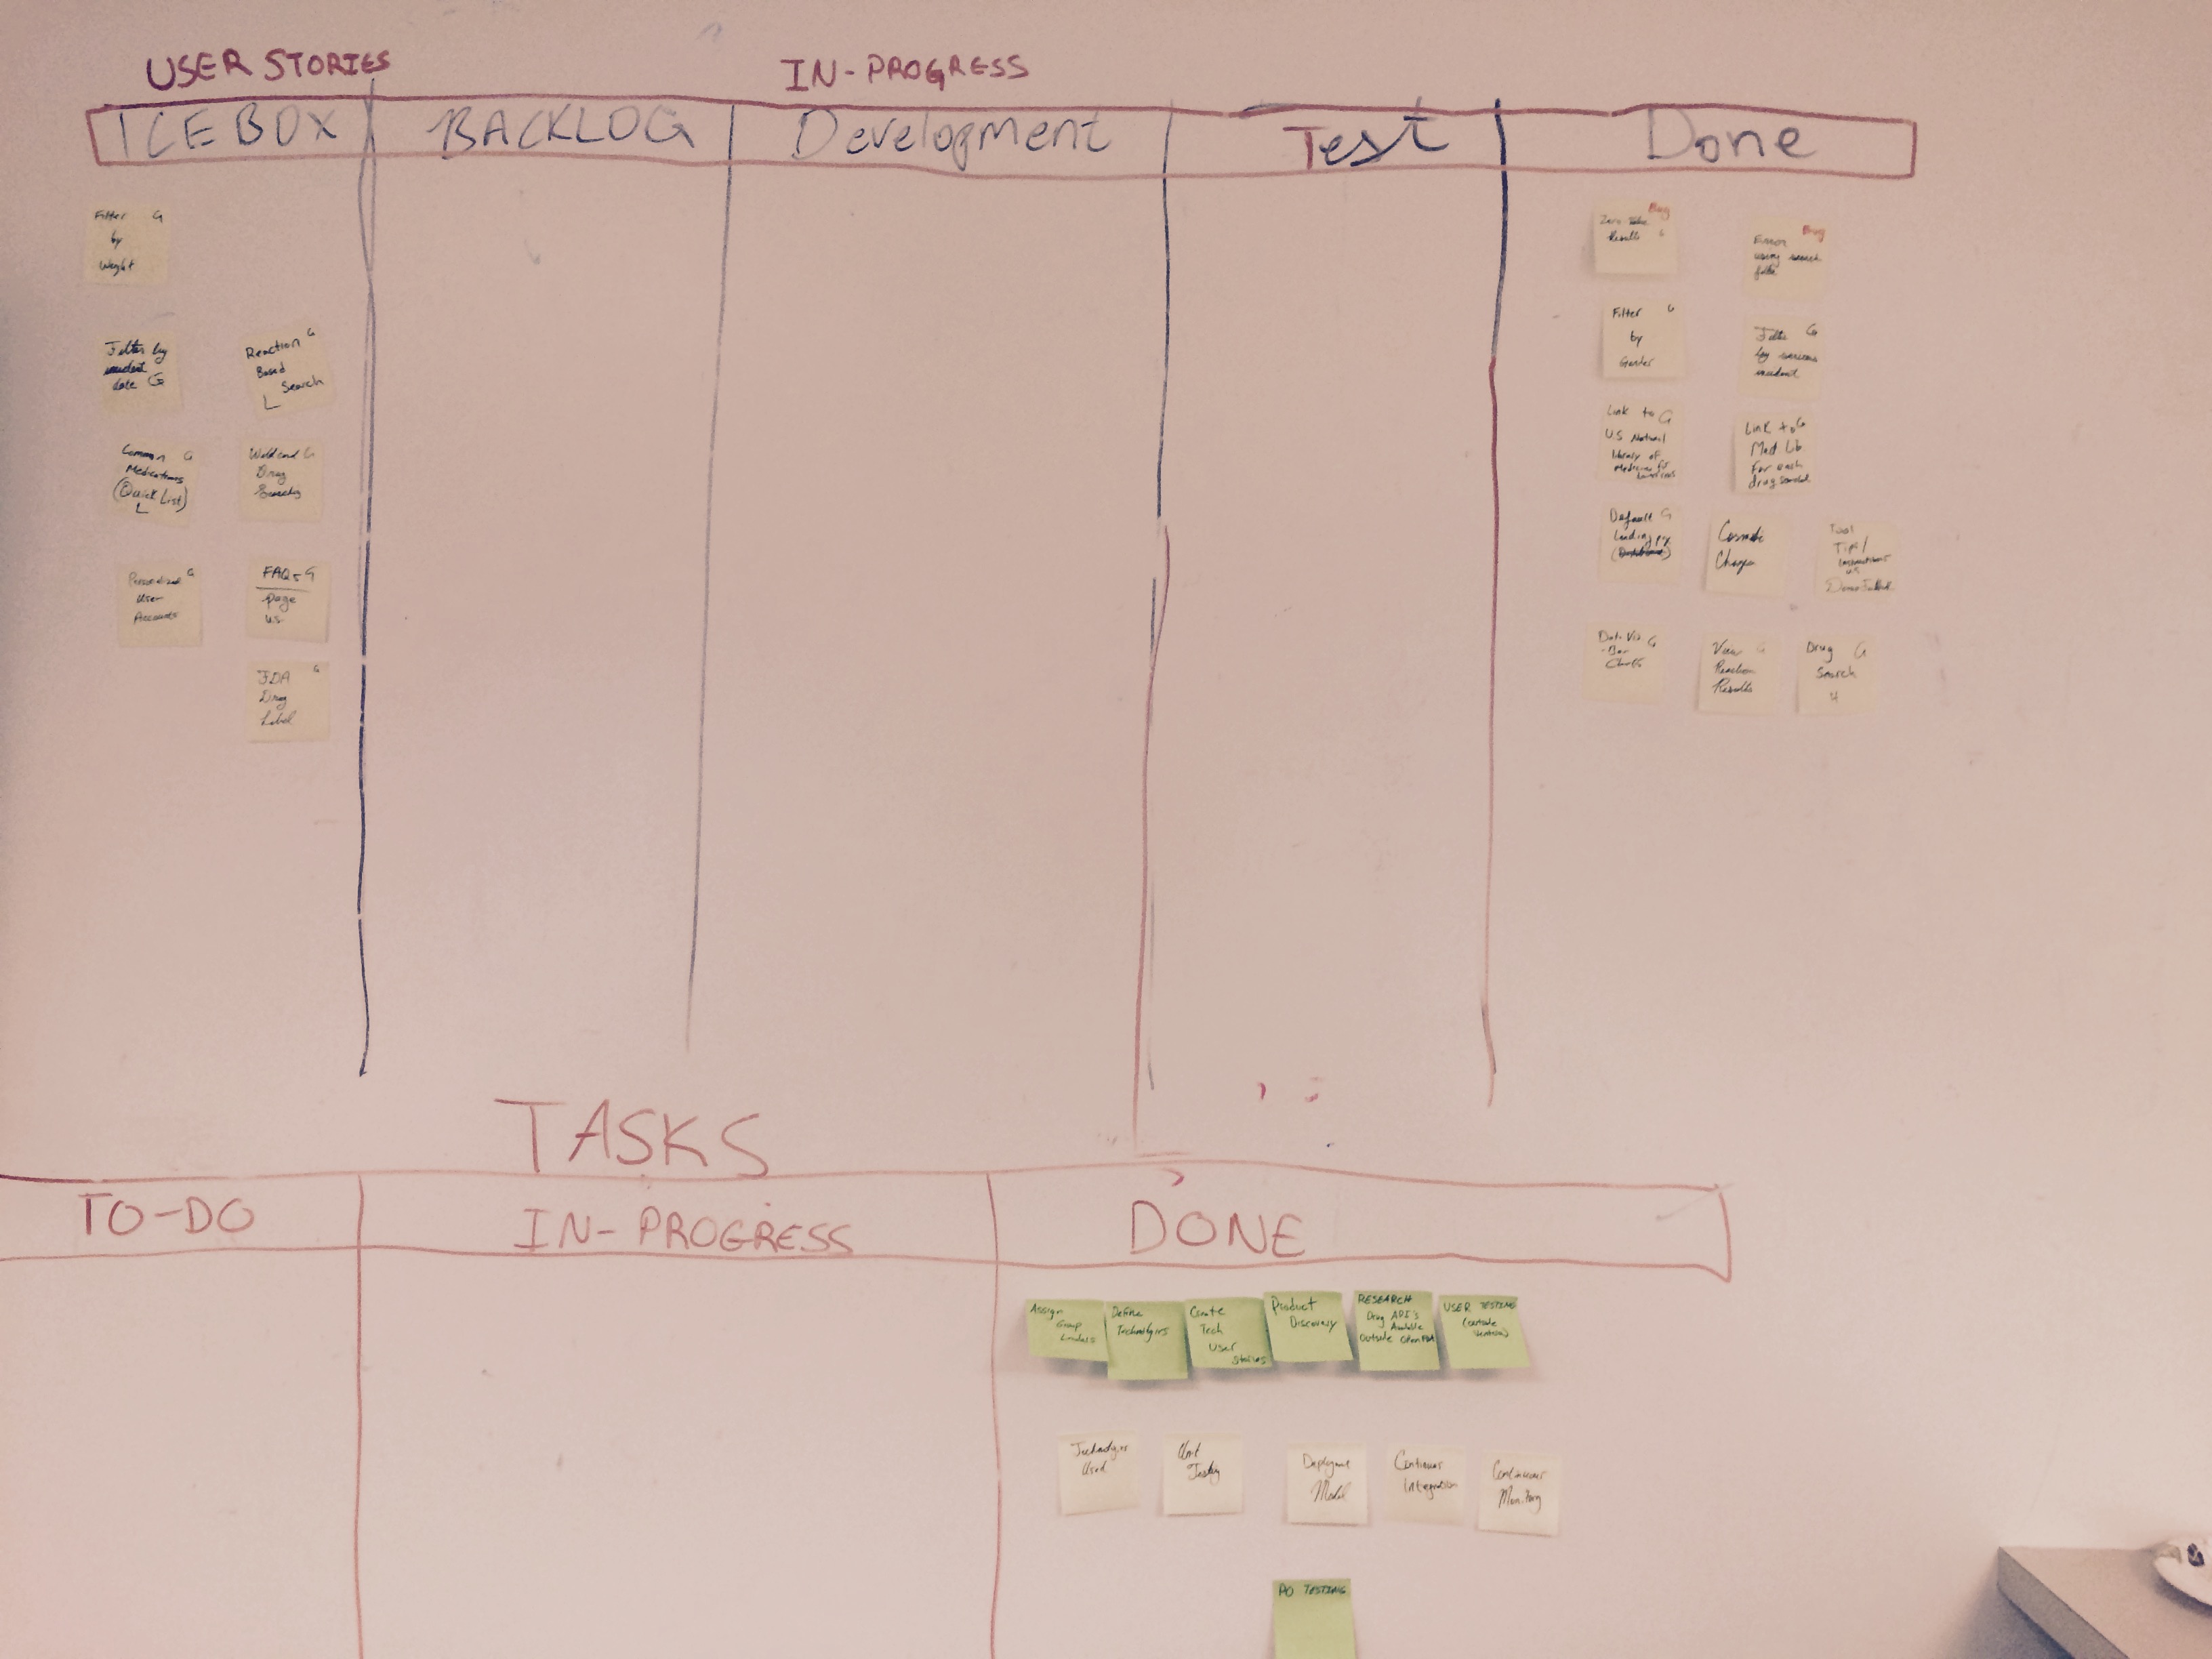 USER STORIES
IN-PROGRESS
ICEBOX
BACKLOG
Development
Test
Done
Filter G
by
Weight
Filter by
incident
date G
Reaction G
Based
Search
L
Common G
Medications
(Quick List)
L
G
Drug
User
Accounts
G
FAQs G
page
us
FDA G
Drug
Label
Bug
Zero
Results
Bug
Error
using search
Filter G
by
Gender
Filter G
by serious
incident
Link to G
U.S National
library of
Link to G
Med Lib
For each
drug search
Default G
landing pg
Cosmetic
Changes
Tool
Tips/
Instructions
us
Data Vis G
-Bar
Charts
View G
Reaction
Results
Drug G
Search
4
TASKS
TO-DO
IN-PROGRESS
DONE
Assign
Group
Define
Technologies
Create
Tech
User
Stories
Product
Discovery
RESEARCH
Drug API's
Available
outside OpenFDA
USER TESTING
(outside
Technologies
Used
Unit
Testing
Deployment
Model
Continuous
Integration
Continuous
Monitoring
PO TESTING